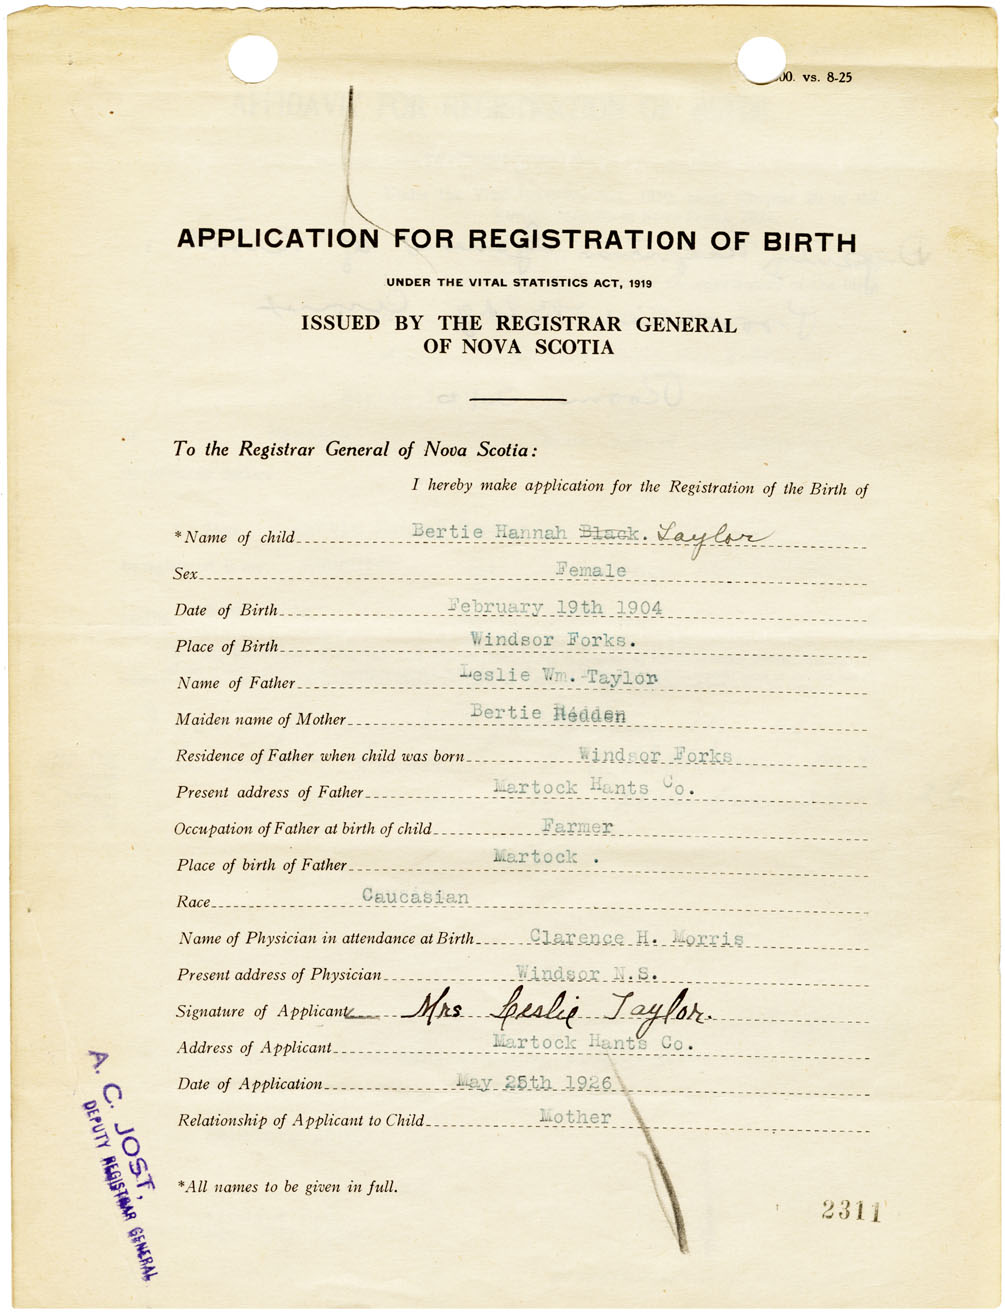 00. vs. 8-25
APPLICATION FOR REGISTRATION OF BIRTH
UNDER THE VITAL STATISTICS ACT, 1919
ISSUED BY THE REGISTRAR GENERAL
OF NOVA SCOTIA
To the Registrar General of Nova Scotia:
I hereby make application for the Registration of the Birth of
*Name of child Bertie Hannah Black. Taylor
Sex Female
Date of Birth February 19th 1904
Place of Birth Windsor Forks.
Name of Father Leslie Wm. Taylor
Maiden name of Mother Bertie Redden
Residence of Father when child was born Windsor Forks
Present address of Father Martock Hants Co.
Occupation of Father at birth of child Farmer
Place of birth of Father Martock .
Race Caucasian
Name of Physician in attendance at Birth Clarence H. Morris
Present address of Physician Windsor N.S.
Signature of Applicant Mrs Leslie Taylor.
Address of Applicant Martock Hants Co.
Date of Application May 25th 1926
Relationship of Applicant to Child Mother
A. C. JOST,
DEPUTY REGISTRAR GENERAL
*All names to be given in full.
2311